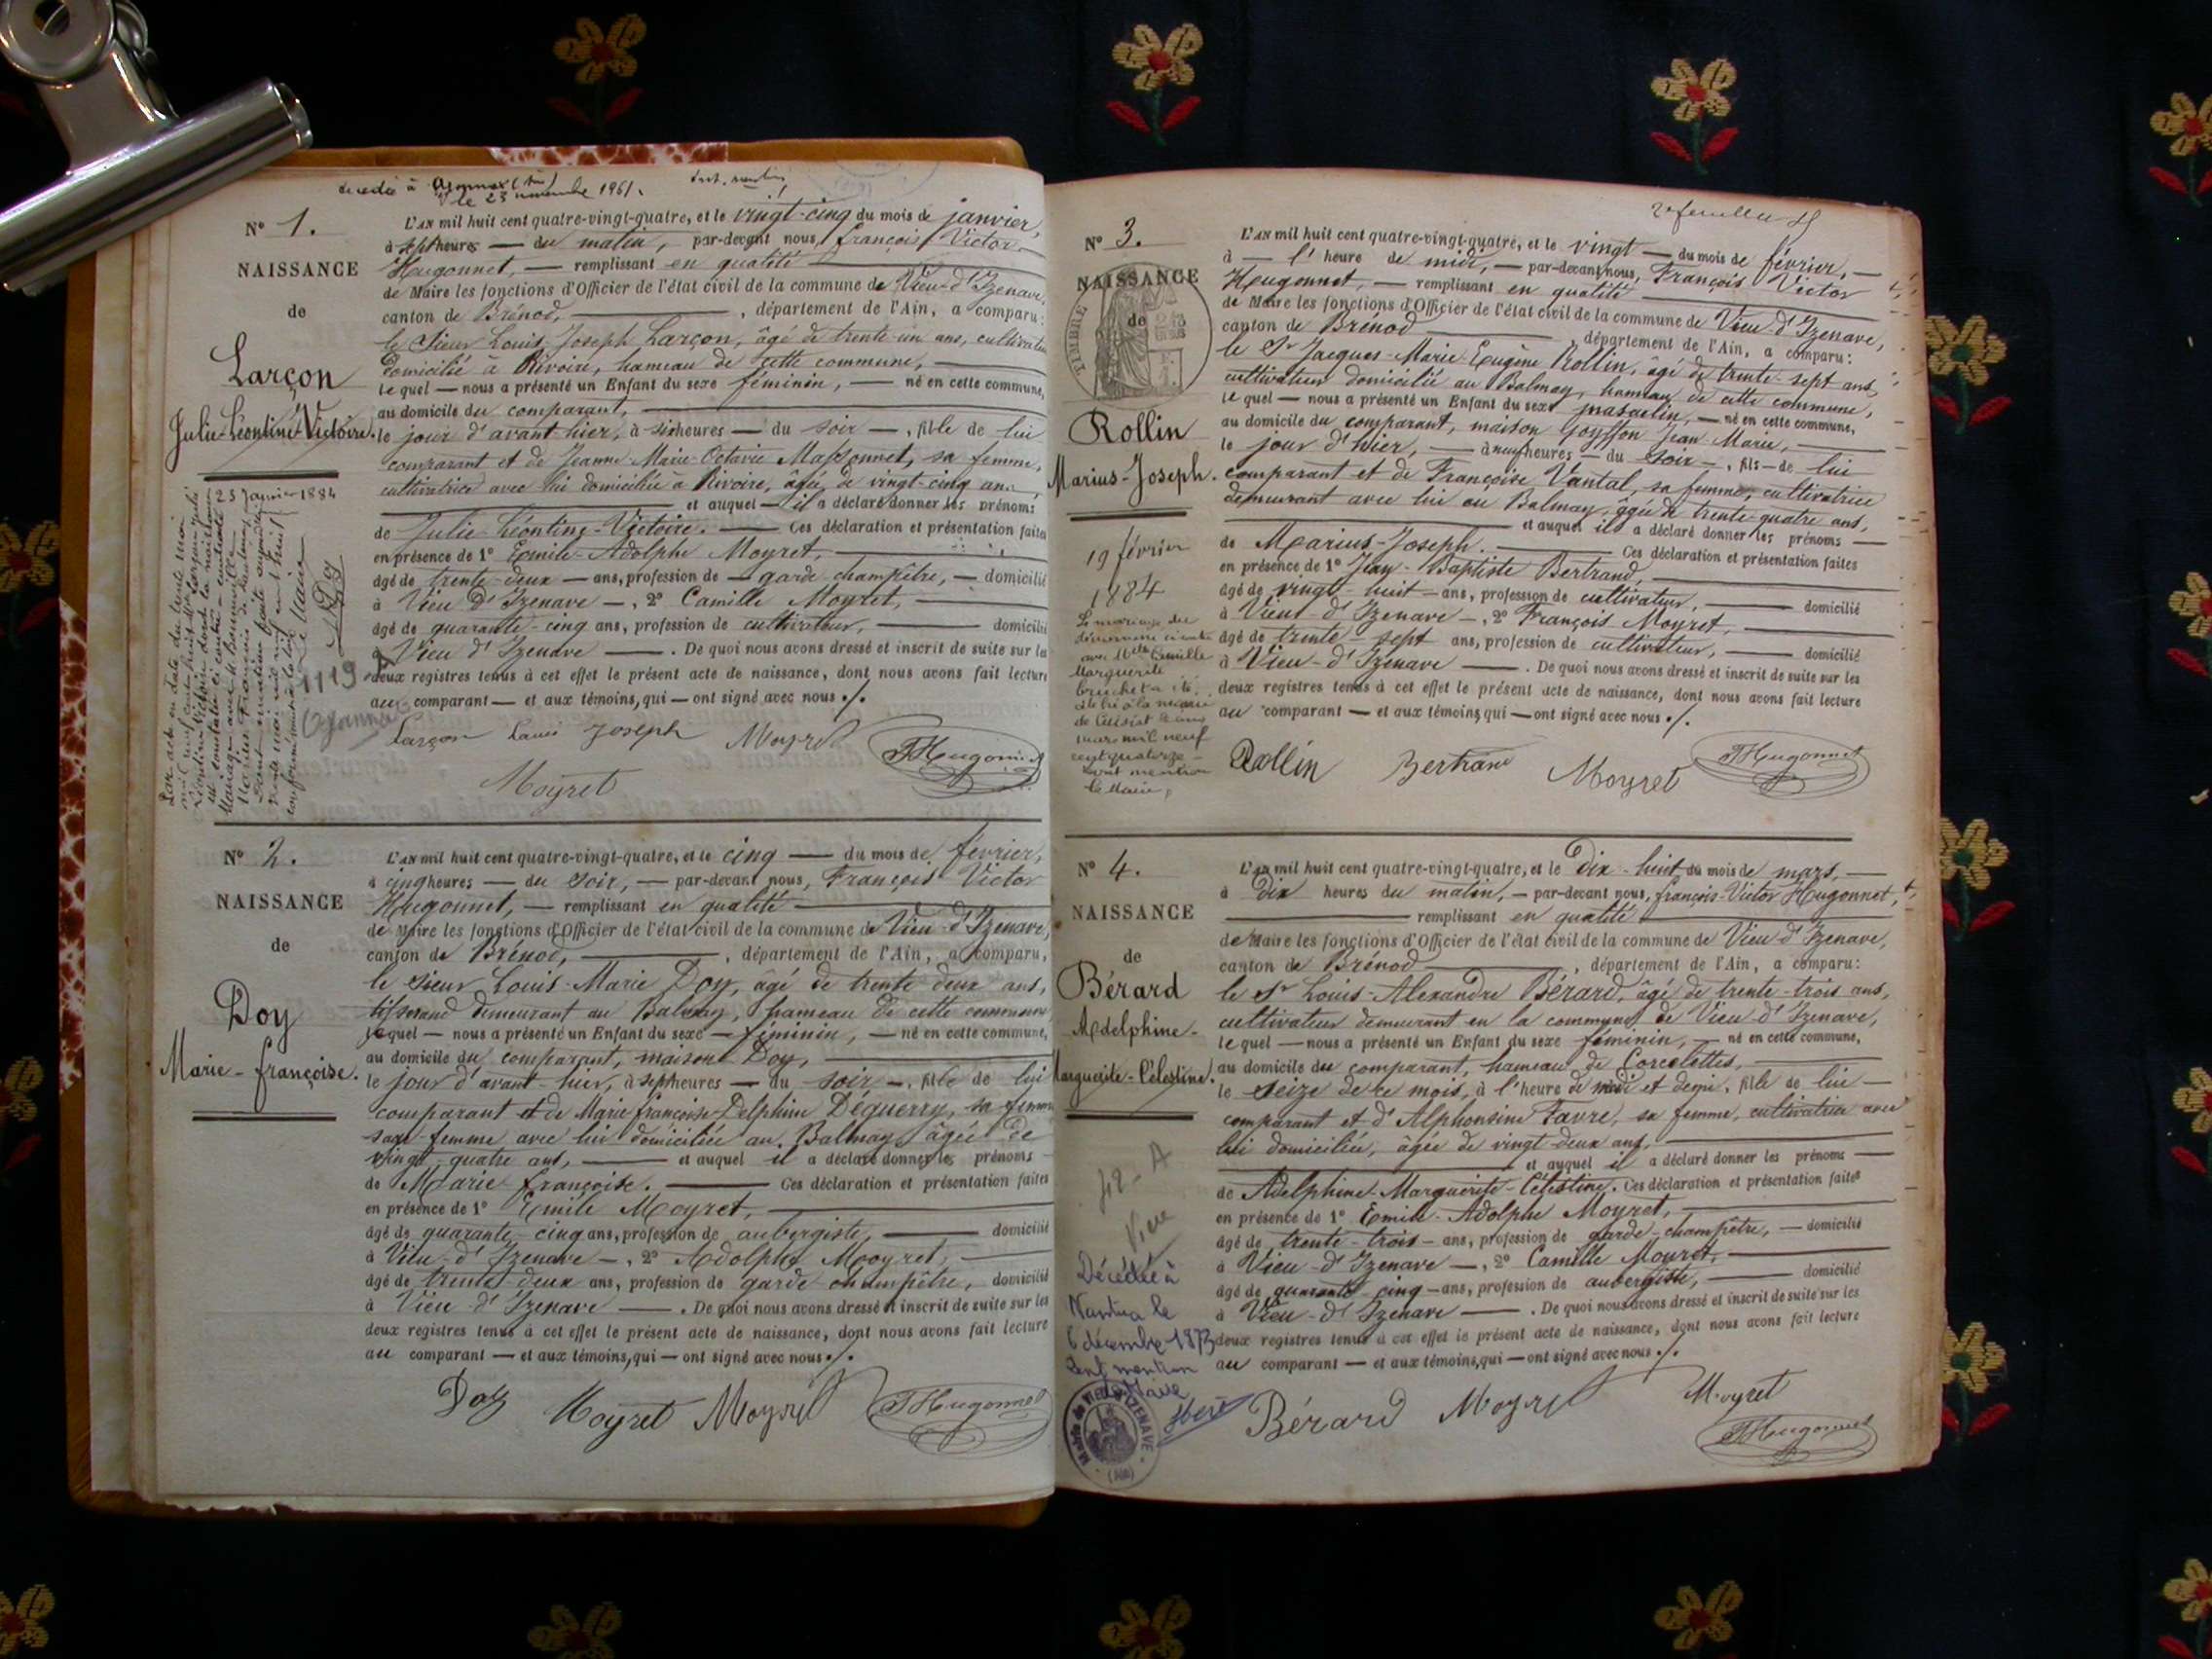 décédée à Oyonnax (Ain)
le 23 novembre 1961.
N° 1.
NAISSANCE
de
Larçon
Julie-Léontine-Victoire.
23 Janvier 1884
Le Maire
1119
L'AN mil huit cent quatre-vingt-quatre, et le vingt-cinq du mois de janvier,
à sept heures — du matin, par-devant nous, François Victor
Hugonnet, — remplissant en qualité
de Maire les fonctions d'Officier de l'état civil de la commune de Vieu-d'Izenave,
canton de Brénod, , département de l'Ain, a comparu:
le Sieur Louis Joseph Larçon, âgé de trente-un ans, cultivateur
domicilié à Rivoire, hameau de cette commune,
lequel — nous a présenté un Enfant du sexe féminin, — né en cette commune,
au domicile du comparant,
le jour d'avant-hier, à six heures — du soir —, fille de lui
comparant et de Jeanne-Marie-Octavie Massonnet, sa femme,
cultivatrice avec lui domiciliée à Rivoire, âgée de vingt-cinq ans,
et auquel il a déclaré donner les prénoms
de Julie-Léontine-Victoire. — Ces déclaration et présentation faites
en présence de 1° Emile-Adolphe Moyret,
âgé de trente-deux — ans, profession de — garde-champêtre, — domicilié
à Vieu d'Izenave —, 2° Camille Moyret,
âgé de quarante-cinq ans, profession de cultivateur, domicilié
à Vieu d'Izenave — . De quoi nous avons dressé et inscrit de suite sur les
deux registres tenus à cet effet le présent acte de naissance, dont nous avons fait lecture
au comparant — et aux témoins, qui — ont signé avec nous ./.
Larçon Louis Joseph Moyret FHugonnet
Moyret
N° 2.
NAISSANCE
de
Doy
Marie-Françoise.
L'AN mil huit cent quatre-vingt-quatre, et le cinq — du mois de février,
à cinq heures — du soir, — par-devant nous, François Victor
Hugonnet, — remplissant en qualité
de Maire les fonctions d'Officier de l'état civil de la commune de Vieu-d'Izenave,
canton de Brénod, , département de l'Ain, a comparu,
le sieur Louis-Marie Doy, âgé de trente deux ans,
tisserand demeurant au Balmay, hameau de cette commune
lequel — nous a présenté un Enfant du sexe — féminin, — né en cette commune,
au domicile du comparant, maison Doy,
le jour d'avant-hier, à sept heures — du soir —, fille de lui
comparant et de Marie Françoise-Delphine Déguerry, sa femme
sage-femme avec lui domiciliée au Balmay, âgée de
vingt-quatre ans, — et auquel il a déclaré donner les prénoms
de Marie-Françoise. — Ces déclaration et présentation faites
en présence de 1° Emile Moyret,
âgé de quarante-cinq ans, profession de aubergiste, domicilié
à Vieu-d'Izenave —, 2° Adolphe Mooyret,
âgé de trente-deux ans, profession de garde champêtre, domicilié
à Vieu-d'Izenave — . De quoi nous avons dressé et inscrit de suite sur les
deux registres tenus à cet effet le présent acte de naissance, dont nous avons fait lecture
au comparant — et aux témoins, qui — ont signé avec nous ./.
Doy Moyret Moyret FHugonnet
N° 3.
NAISSANCE
de
TIMBRE
Rollin
Marius-Joseph.
19 février
1884
Le mariage du
dénommé ci-contre
avec Mlle Camille
Marguerite
Bruchet a été
célébré à la mairie
de Cuisiat
mars mil neuf
cent quatorze
Dont mention
le Maire,
2e feuillet
L'AN mil huit cent quatre-vingt-quatre, et le vingt — du mois de février, —
à — l' heure de midi, — par-devant nous, François Victor
Hugonnet, — remplissant en qualité
de Maire les fonctions d'Officier de l'état civil de la commune de Vieu-d'Izenave,
canton de Brénod département de l'Ain, a comparu:
le Sr Jacques-Marie-Eugène Rollin, âgé de trente-sept ans,
cultivateur domicilié au Balmay, hameau de cette commune,
lequel — nous a présenté un Enfant du sexe masculin, — né en cette commune,
au domicile du comparant, maison Goyffon Jean-Marie,
le jour d'hier, — à neuf heures — du soir —, fils — de lui
comparant et de Françoise Vantal, sa femme, cultivatrice
demeurant avec lui au Balmay, âgée de trente-quatre ans,
et auquel il a déclaré donner les prénoms —
de Marius-Joseph. Ces déclaration et présentation faites
en présence de 1° Jean-Baptiste Bertrand,
âgé de vingt-huit — ans, profession de cultivateur, domicilié
à Vieu-d'Izenave —, 2° François Moyret,
âgé de trente-sept ans, profession de cultivateur, domicilié
à Vieu-d'Izenave — . De quoi nous avons dressé et inscrit de suite sur les
deux registres tenus à cet effet le présent acte de naissance, dont nous avons fait lecture
au comparant — et aux témoins, qui — ont signé avec nous ./.
Rollin Bertrand Moyret FHugonnet
N° 4.
NAISSANCE
de
Bérard
Adelphine-
Marguerite-Célestine.
Décédée à
Nantua le
6 décembre 1973
Dont mention
Le Maire
Mairie de VIEU-D'IZENAVE
(Ain)
L'AN mil huit cent quatre-vingt-quatre, et le Dix-huit du mois de mars, —
à Dix heures du matin, — par-devant nous, François-Victor Hugonnet,
remplissant en qualité
de Maire les fonctions d'Officier de l'état civil de la commune de Vieu d'Izenave,
canton de Brénod , département de l'Ain, a comparu:
le Sr Louis-Alexandre Bérard, âgé de trente-trois ans,
cultivateur demeurant en la commune de Vieu d'Izenave,
lequel — nous a présenté un Enfant du sexe féminin, — né en cette commune,
au domicile du comparant, hameau de Corcelettes,
le seize de ce mois, à l'heure de midi et demi, fille de lui —
comparant et d'Alphonsine Favre, sa femme, cultivatrice avec
lui domiciliée, âgée de vingt-deux ans,
et auquel il a déclaré donner les prénoms —
de Adelphine-Marguerite-Célestine. Ces déclaration et présentation faites
en présence de 1° Emile-Adolphe Moyret,
âgé de trente-trois — ans, profession de garde-champêtre, — domicilié
à Vieu-d'Izenave —, 2° Camille Moyret,
âgé de quarante-cinq — ans, profession de aubergiste, domicilié
à Vieu-d'Izenave — . De quoi nous avons dressé et inscrit de suite sur les
deux registres tenus à cet effet le présent acte de naissance, dont nous avons fait lecture
au comparant — et aux témoins, qui — ont signé avec nous ./.
Bérard Moyret Moyret
FHugonnet